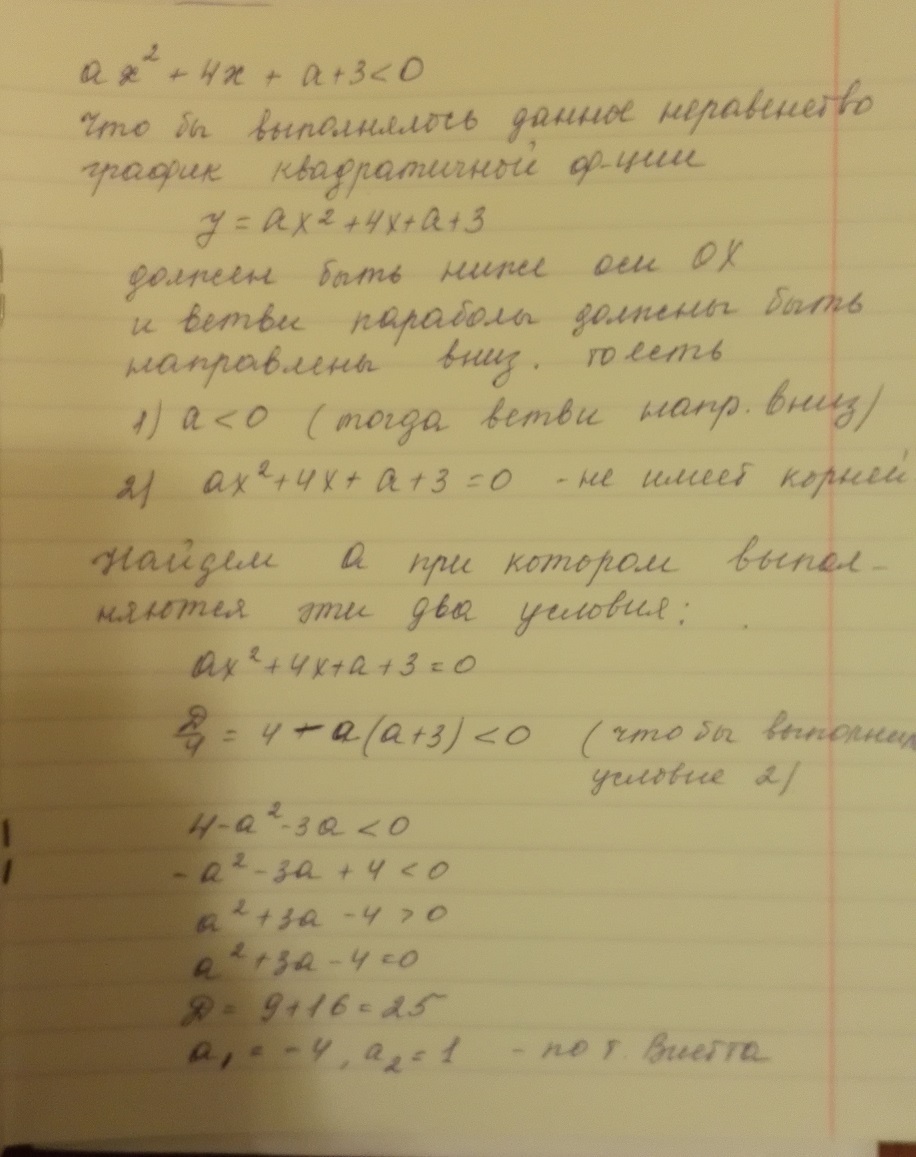 ax² + 4x + a+3 < 0
Что бы выполнялось данное неравенство
график квадратичной ф-ции
y = ax² + 4x + a + 3
должен быть ниже оси OX
и ветви параболы должны быть
направлены вниз. то есть
1) a < 0 (тогда ветви напр. вниз)
2) ax² + 4x + a + 3 = 0 - не имеет корней
Найдем a при котором выпол-
няются эти два условия:
ax² + 4x + a + 3 = 0
D/4 = 4 - a(a+3) < 0 (что бы
условие 2)
4 - a² - 3a < 0
- a² - 3a + 4 < 0
a² + 3a - 4 > 0
a² + 3a - 4 = 0
D = 9 + 16 = 25
a₁ = -4, a₂ = 1 - по т. Виетта